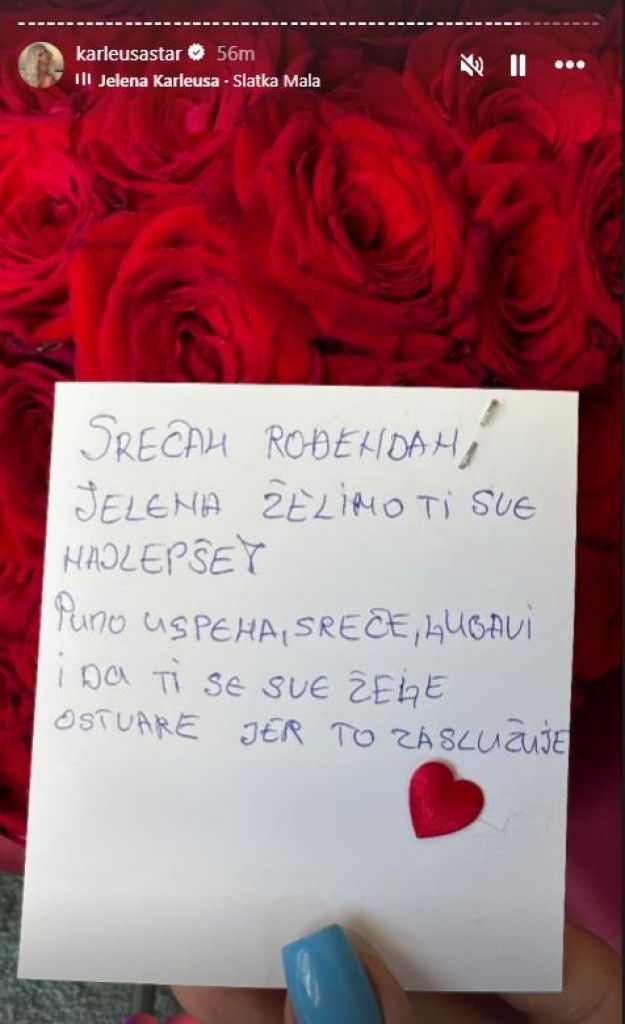 karleusastar 56m
Jelena Karleusa · Slatka Mala
SREĆAN ROĐENDAN
JELENA ŽELIMO TI SVE
NAJLEPŠE
PUNO USPEHA, SREĆE, LJUBAVI
I DA TI SE SVE ŽELJE
OSTVARE JER TO ZASLUŽUJE